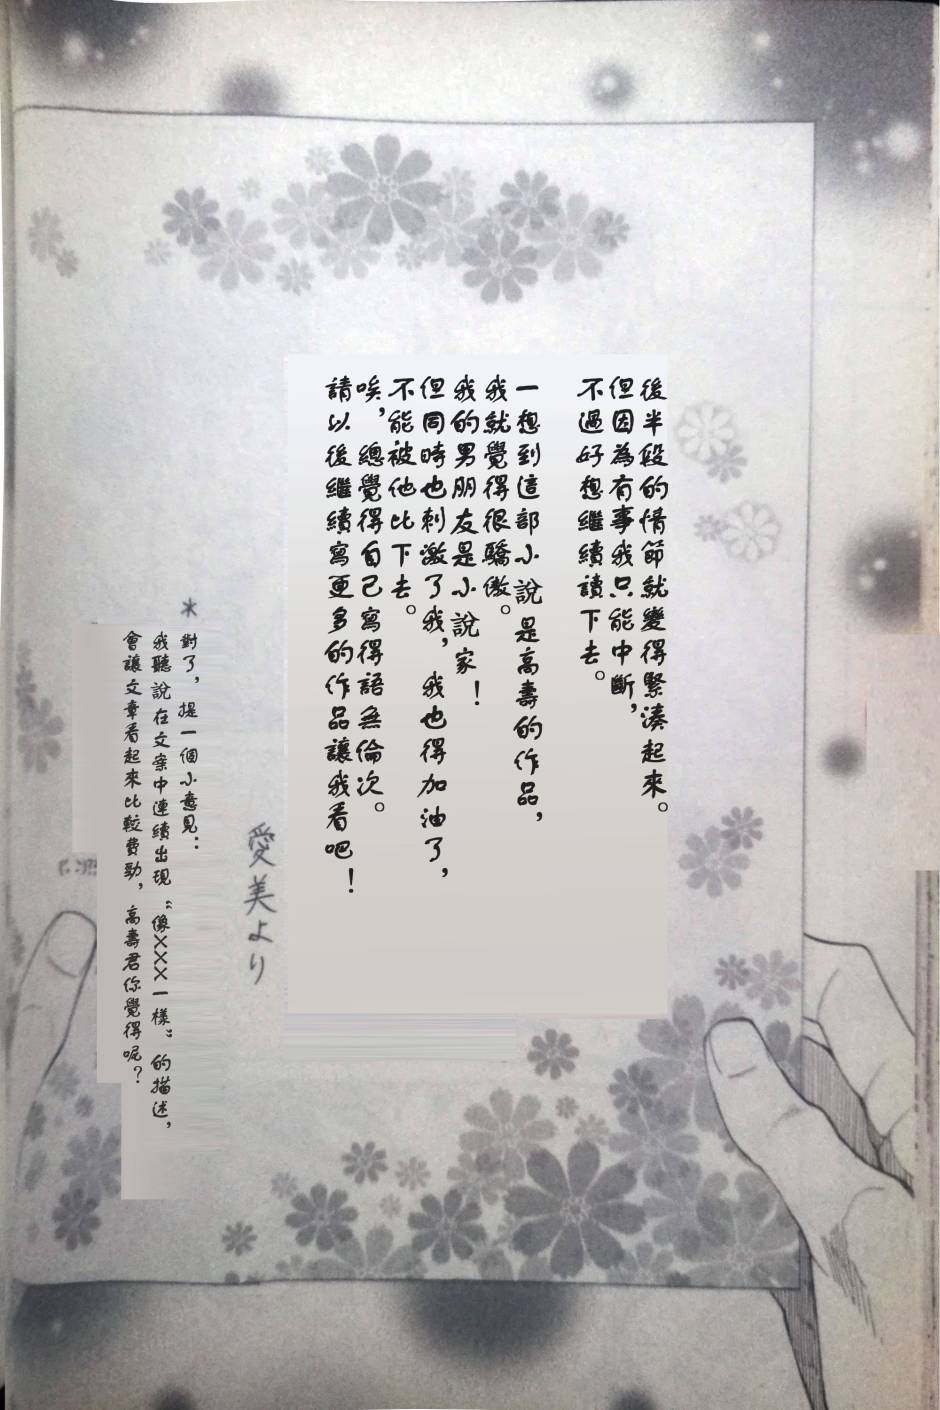 後半段的情節就變得緊湊起來。
但因為有事我只能中斷，
不過好想繼續讀下去。
一想到這部小說是高壽的作品，
我就覺得很驕傲。
我的男朋友是小說家！
但同時也刺激了我，我也得加油了，
不能被他比下去。
唉，總覺得自己寫得語無倫次。
請以後繼續寫更多的作品讓我看吧！
愛美より
＊對了，提一個小意見：
我聽說在文案中連續出現“像×××一樣”的描述，
會讓文章看起來比較費勁，高壽君你覺得呢？